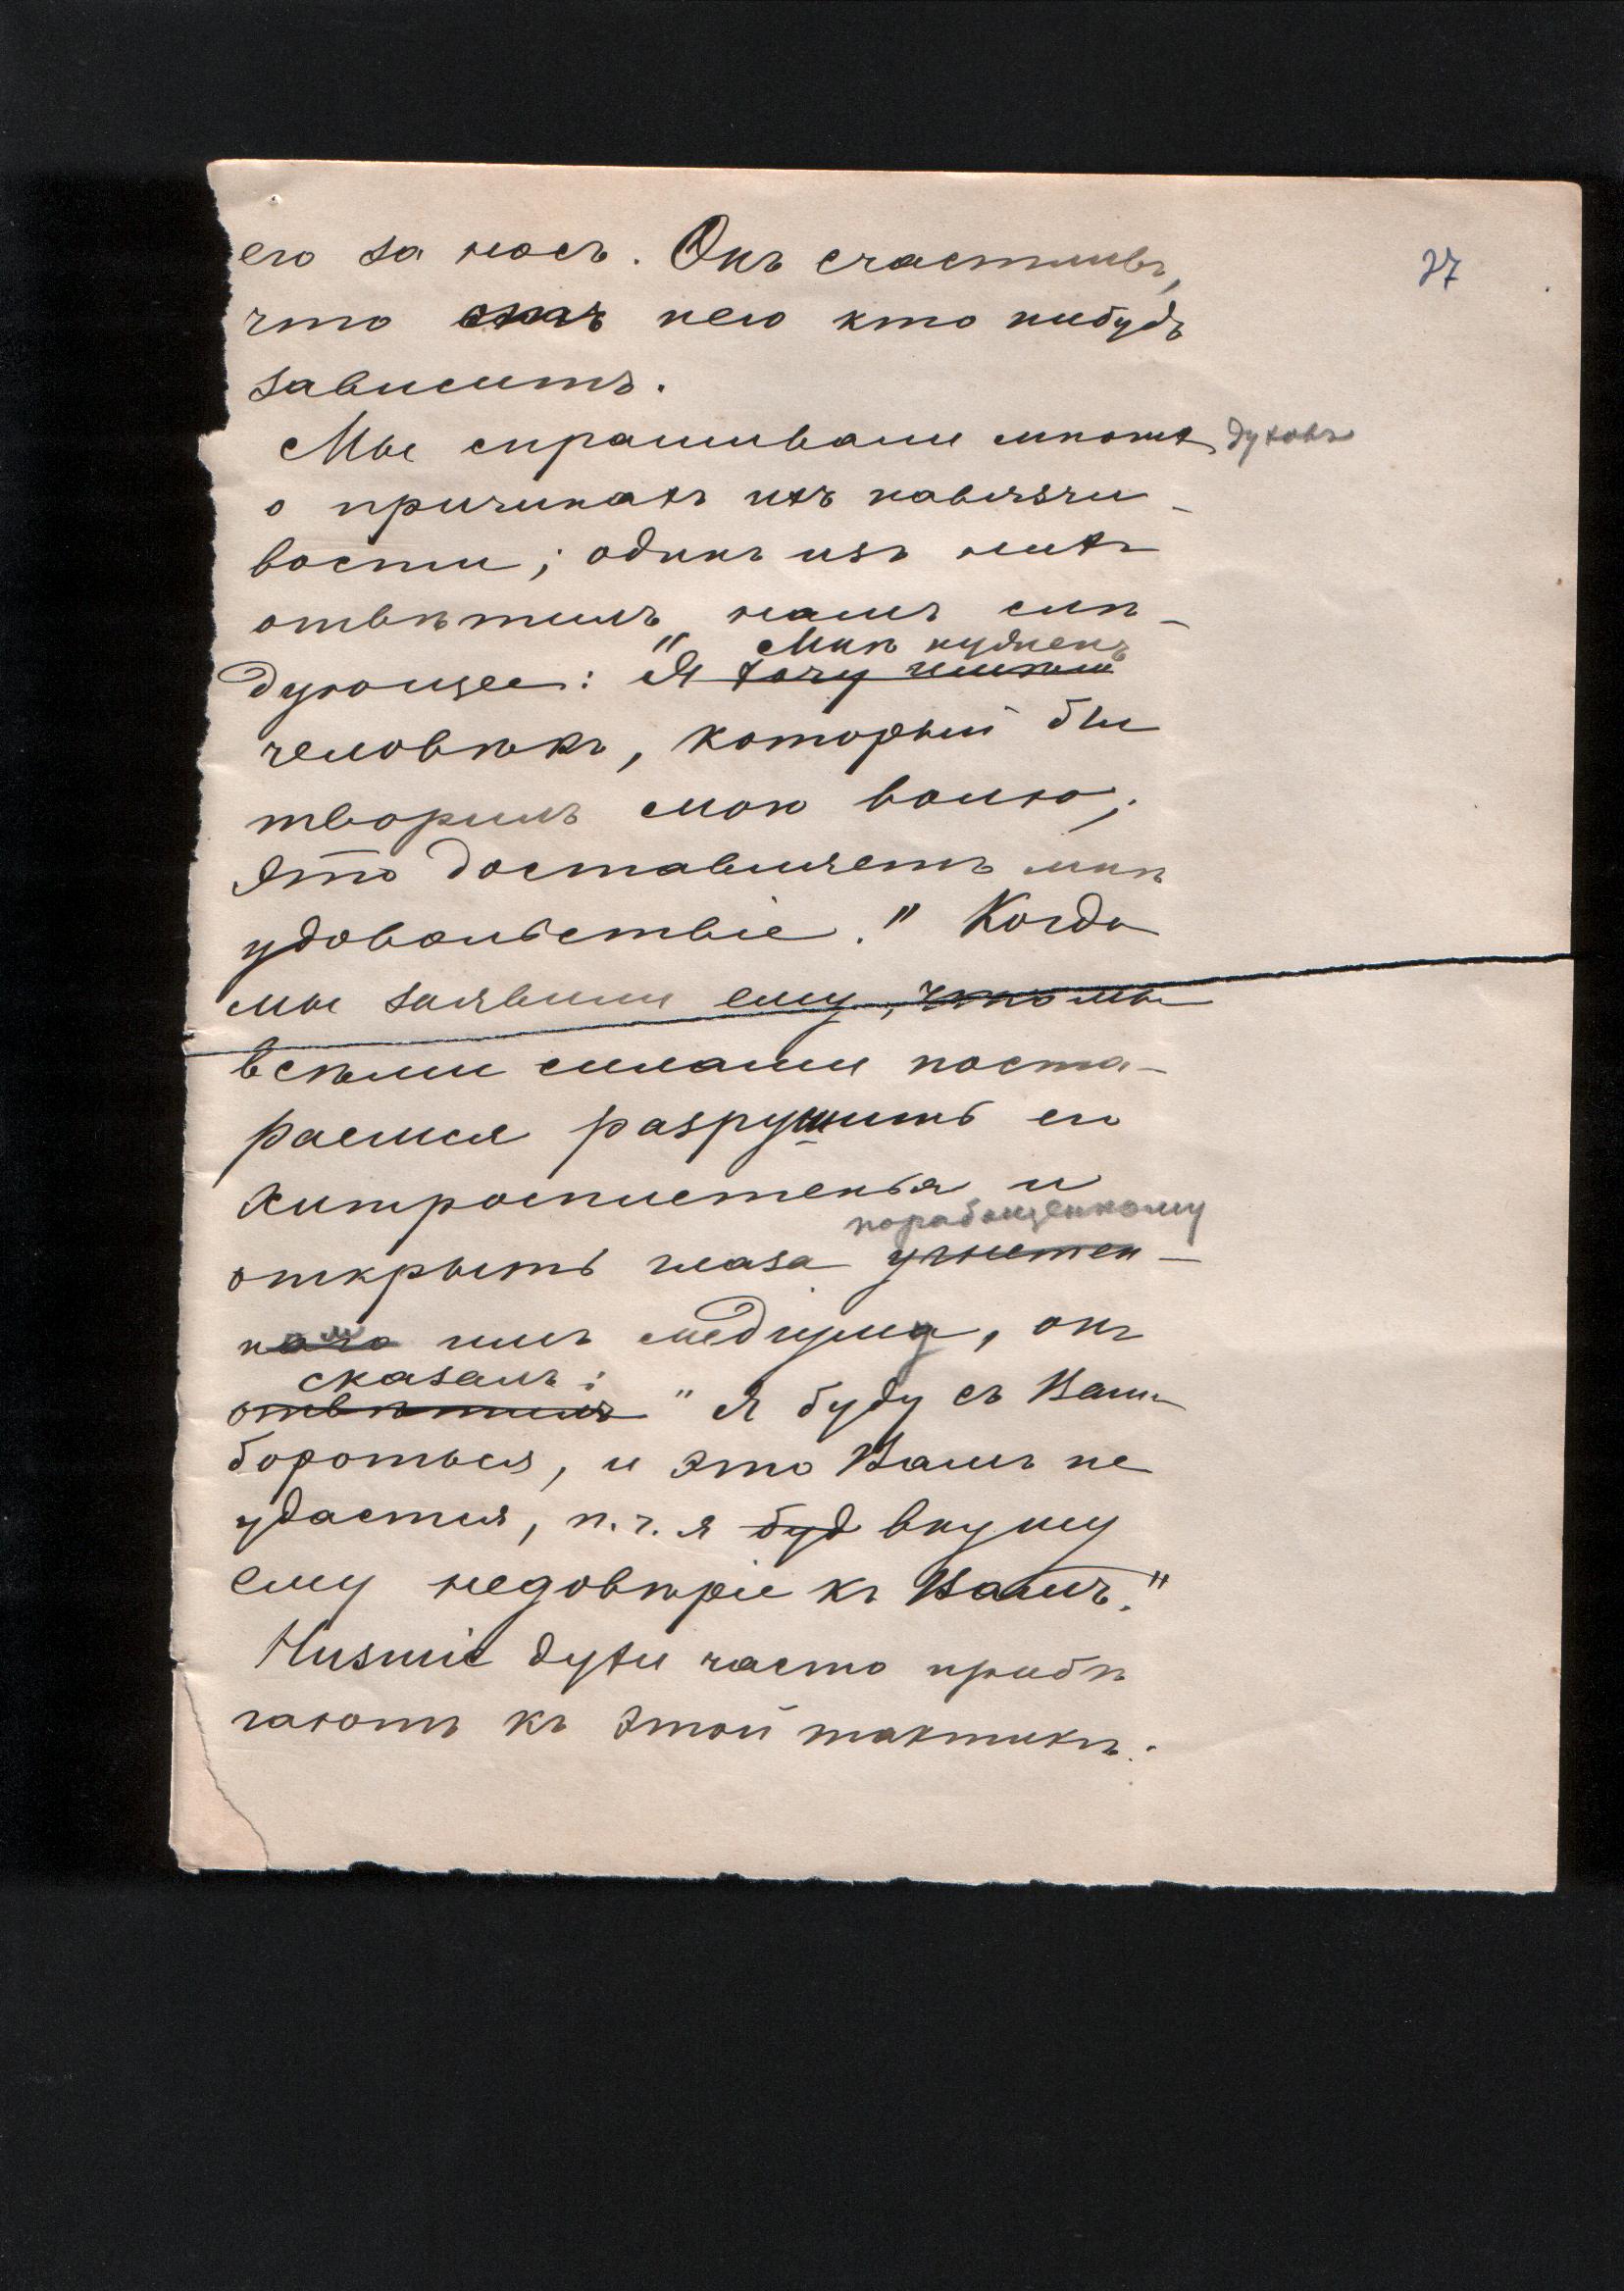 27
его за носъ. Онъ счастливъ,
что отъ него кто нибудь
зависитъ.
Мы спрашивали многихъ духовъ
о причинахъ ихъ навязчи-
вости; одинъ изъ нихъ
отвѣтилъ намъ слѣ-
Мнѣ нуженъ
дующее: "Я хочу
человѣкъ, который бы
творилъ мою волю;
это доставляетъ мнѣ
удовольствіе." Когда
мы заявили ему, что мы
всѣми силами поста-
раемся разрушить его
хитросплетенья и
порабощенному
открыть глаза угнетен-
наго имъ медиуму, онъ
сказалъ:
отвѣтилъ "Я буду съ Вами
бороться, и это Вамъ не
удастся, п. ч. я буд внушу
ему недовѣріе къ Вамъ."
Низшіе духи часто прибѣ
гаютъ къ этой тактикѣ.